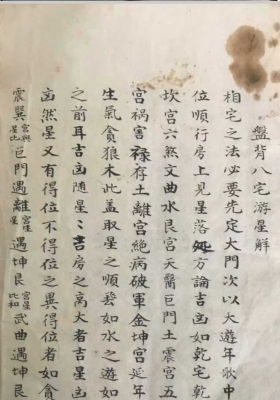 盤背八宅游星解
相宅之法必要先定大門次以大遊年歌中
位順行房上見星落処方論吉凶如乾宅乾
坎宮六煞文曲水艮宮天醫巨門土震宮五
宮禍害禄存土離宮絕病破軍金坤宮延年
生氣貪狼木此盖取星之順發如水之遊如
之前耳吉凶隨星〻吉房之高大者吉星凶
凶然星又有得位不得位之異得位者如貪
震巽宮與星比巨門遇離星宮生遇坤艮宮星比和武曲遇坤艮